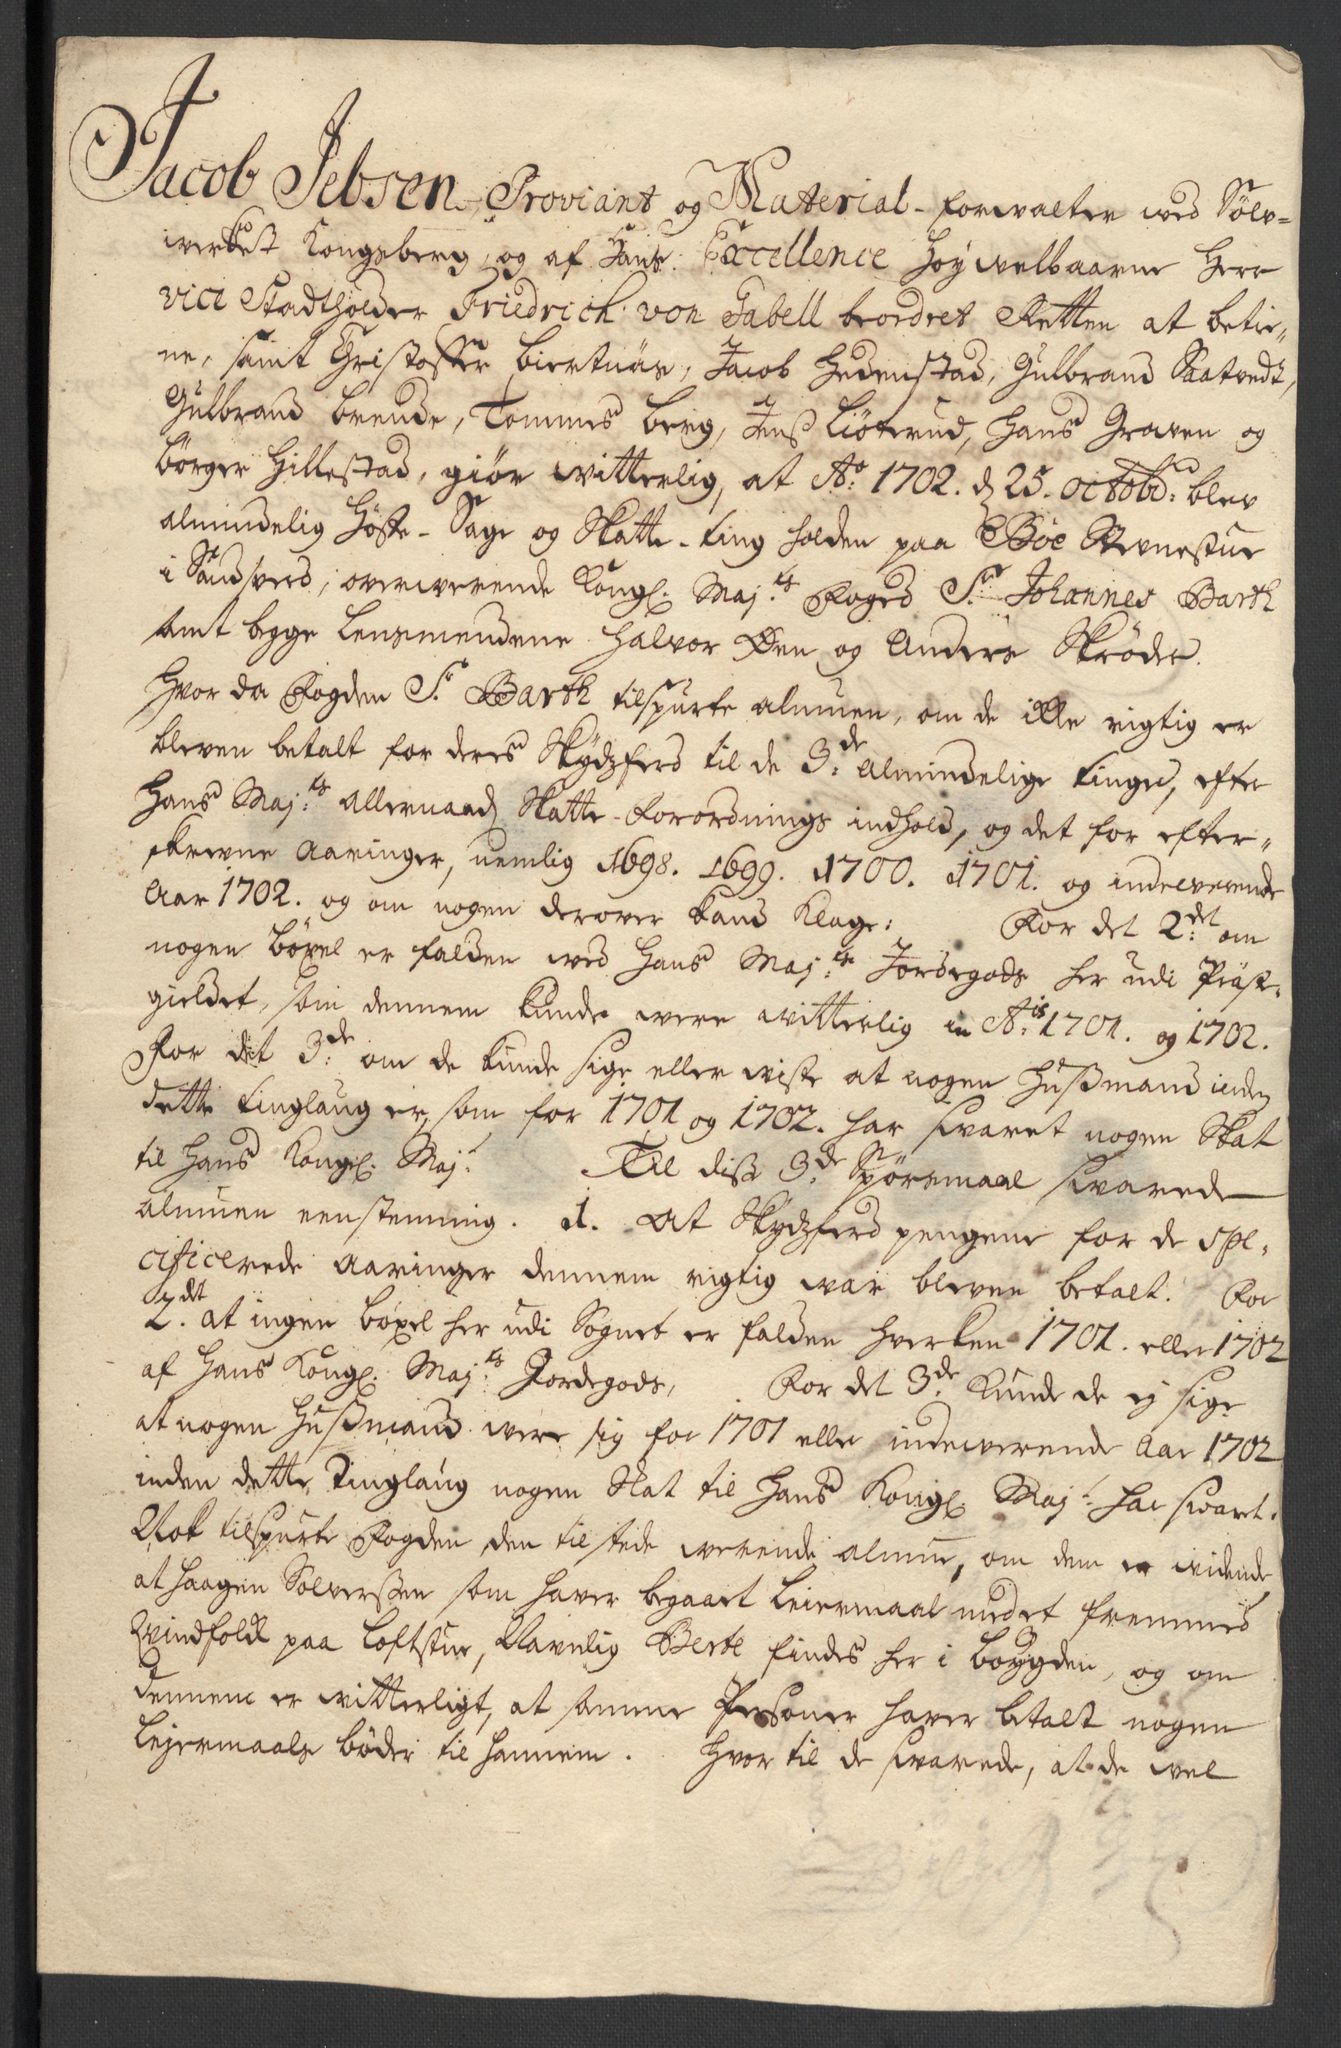 Jacob Jebsen Proviant og Material-forvalter ved Sølv-
verket Kongsberg, og af Hans Excellence Høywelbaarne Herr
vice Stadtholder Friedrich von Gabell beordret Retten at betie-
ne, samt Christoffer Biertnæs, Jacob Hedenstad, Gulbrand Saatvedt,
Gulbrand Brende, Tommes Berg, Jens Liøterud, Hans Graven og
Børger Hillestad, giør witterlig, at Ao 1702. d 25. octobr: blev
almindelig Høste-Sage og Skatte-ting holden paa Bøe Stevnestue
i Sandsverd, overwerende Kongl. Maj:ts Foged Sr Johannes Barth
samt begge Lensmendene Halvor Øen og Anders Skrøder.
Hvor da Fogden Sr Barth tilspurte almuen, om de ikke rigtig er
bleven betalt for deres Skydzferd til de 3de almindelige tinge, efter
Hans Maj:ts allernaad Skatte-Forordnings indhold, og det for efter-
skrevne aaringer, nemlig 1698. 1699. 1700. 1701. og indewerende
Aar 1702. og om nogen derover kand klage: For det 2:det om
nogen böxel er falden wed Hans Maj:ts Jordegods her udi Præste-
gieldet, som dennem kunde were witterlig in A:is 1701. og 1702.
For det 3:de om de kunde sige eller wiste at nogen Hussmand inden
dette tinglaug er, som for 1701 og 1702. har swaret nogen Skat
til Hans Kongl. Maj:t Til disse 3:de Spørsmaal swarede
almuen eenstemmig. 1. At Skydzferd pengene for de spe-
cificerede aaringer dennem rigtig war bleven betalt. For
2:det at ingen böxel her udi Sognet er falden hverken 1701. eller 1702
af Hans Kongl. Maj:ts Jordegods, For det 3:de kunde de ej sige
at nogen Hussmand were sig for 1701 eller indewerende Aar 1702
inden dette Tinglaug nogen Skat til Hans Kongl Maj:t har swaret.
Nok tilspurte Fogden den tilstede werende almue, om dem er widende
at Haagen Solverssen som haver begaaet Leiermaal med et fremmed
Qvindfolk paa Loftstue, Navnlig Berte findes her i Bøygden, og om
dennem er witterligt, at samme Personer haver betalt nogen
Lejermaals bøder til hannem. Hvor til de swarede, at de wel